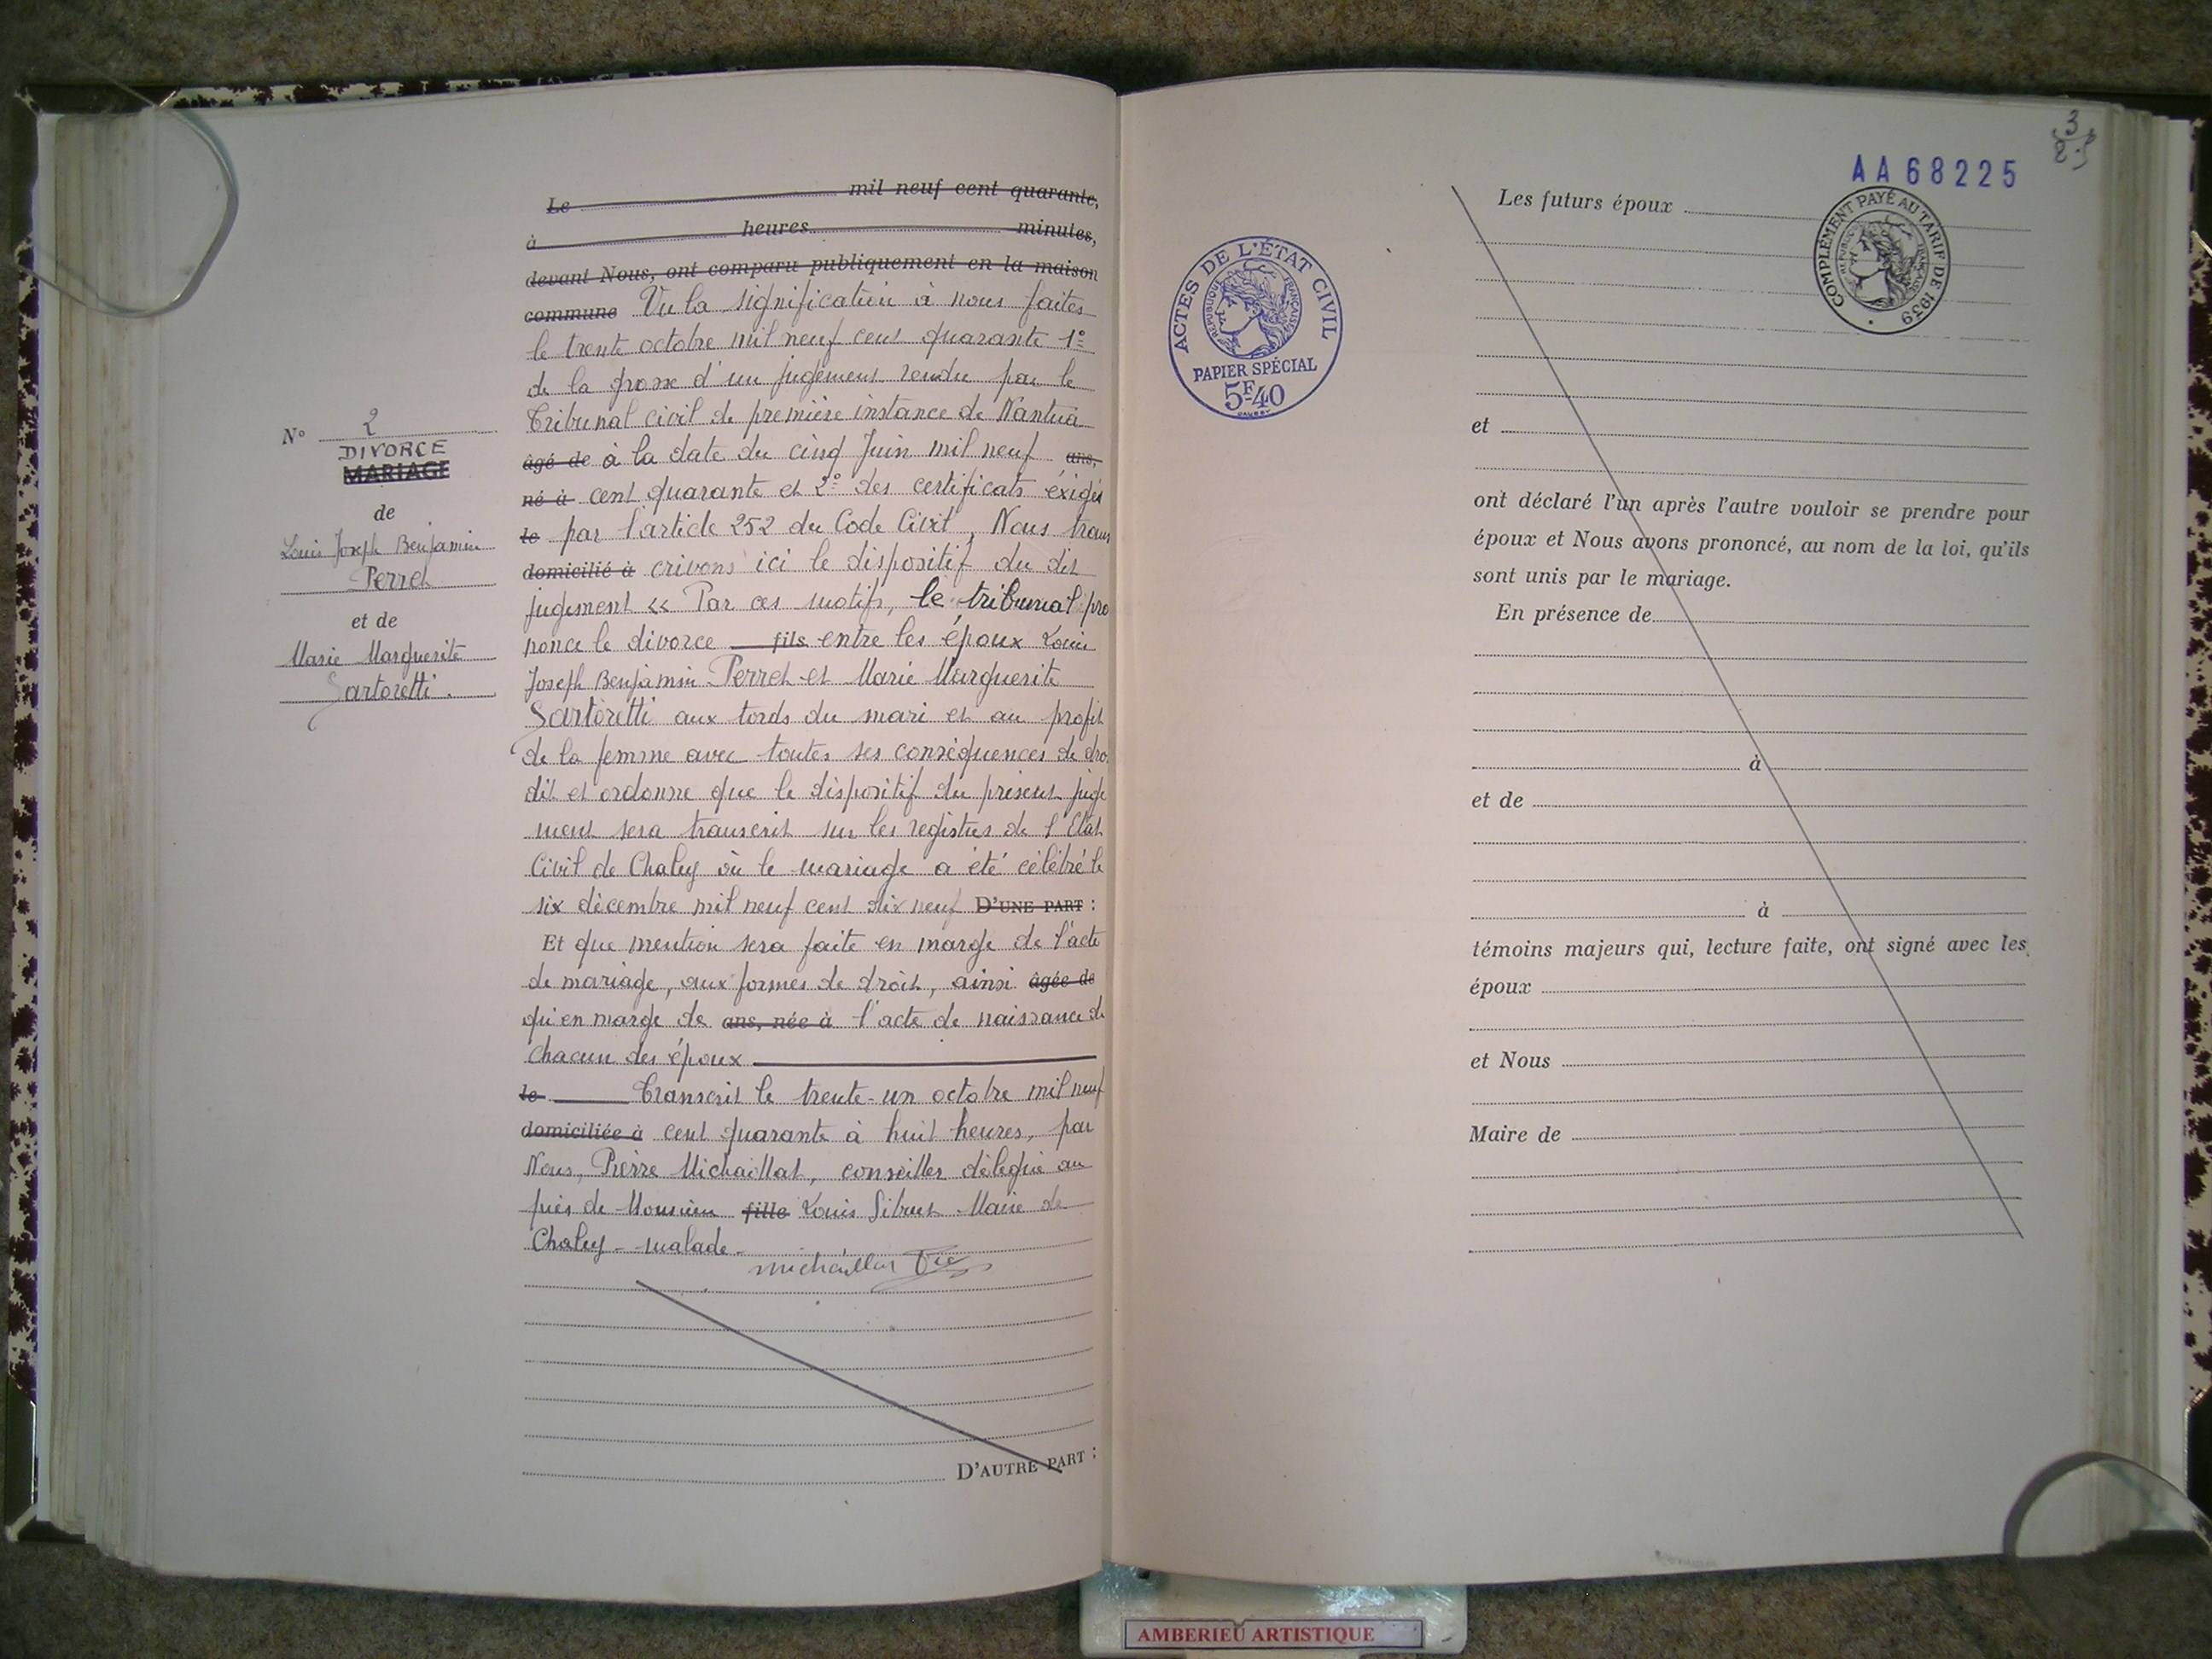 Le mil neuf cent quarante,
à heures minutes,
devant Nous, ont comparu publiquement en la maison
commune Vu la signification à nous faites
le trente octobre mil neuf cent quarante 1°
de la grosse d'un jugement rendu par le
Tribunal civil de première instance de Nantua
âgé de à la date du cinq Juin mil neuf ans,
né à cent quarante et 2° des certificats exigés
le par l'article 252 du Code Civil, Nous trans
domicilié à crivons ici le dispositif du dit
jugement « Par ces motifs, le tribunal pro
nonce le divorce fils entre les époux Louis
Joseph Benjamin Perret et Marie Marguerite
Sartoretti aux tords du mari et au profit
de la femme avec toutes ses conséquences de dro
dit et ordonne que le dispositif du présent juge
ment sera transcrit sur les registres de l'Etat
Civil de Chaley où le mariage a été célébré le
six décembre mil neuf cent dix neuf D'UNE PART :
Et que mention sera faite en marge de l'acte
de mariage, aux formes de droit, ainsi âgée de
qu'en marge de ans, née à l'acte de naissance de
chacun des époux
le Transcrit le trente-un octobre mil neuf
domiciliée à cent quarante à huit heures, par
Nous, Pierre Michaillat, conseiller délégué au
près de Monsieur fille Louis Sibuet Maire de
Chaley - malade -
Michaillat
D'AUTRE PART :
N° 2
DIVORCE
MARIAGE
de
Louis Joseph Benjamin
Perret
et de
Marie Marguerite
Sartoretti.
ACTES DE L'ÉTAT CIVIL
RÉPUBLIQUE FRANÇAISE
PAPIER SPÉCIAL
5F40
3
AA68225
COMPLÉMENT PAYÉ AU TARIF DE 1939
Les futurs époux
et
ont déclaré l'un après l'autre vouloir se prendre pour
époux et Nous avons prononcé, au nom de la loi, qu'ils
sont unis par le mariage.
En présence de
à
et de
à
témoins majeurs qui, lecture faite, ont signé avec les
époux
et Nous
Maire de
AMBERIEU ARTISTIQUE